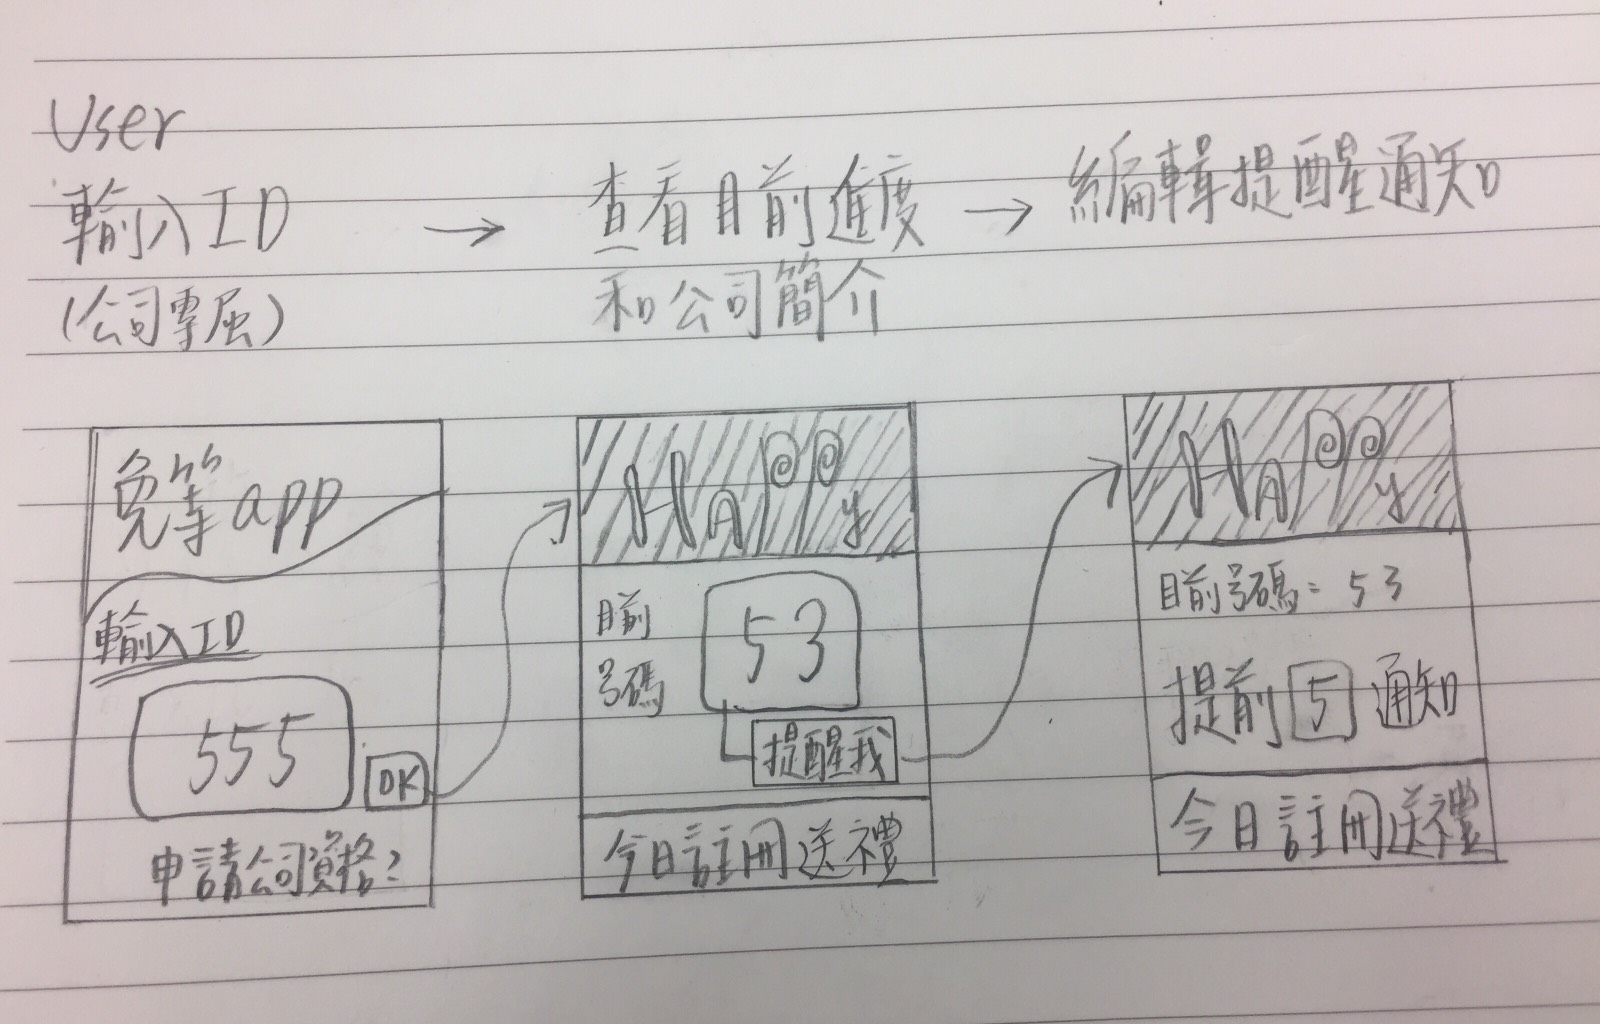 User
輸入ID
(公司專屬)
→
查看目前進度
和公司簡介
→
編輯提醒通知
免等app
輸入ID
555
OK
申請公司資格?
HAPPy
目前
號碼
53
提醒我
今日註冊送禮
HAPPy
目前號碼:53
提前5通知
今日註冊送禮